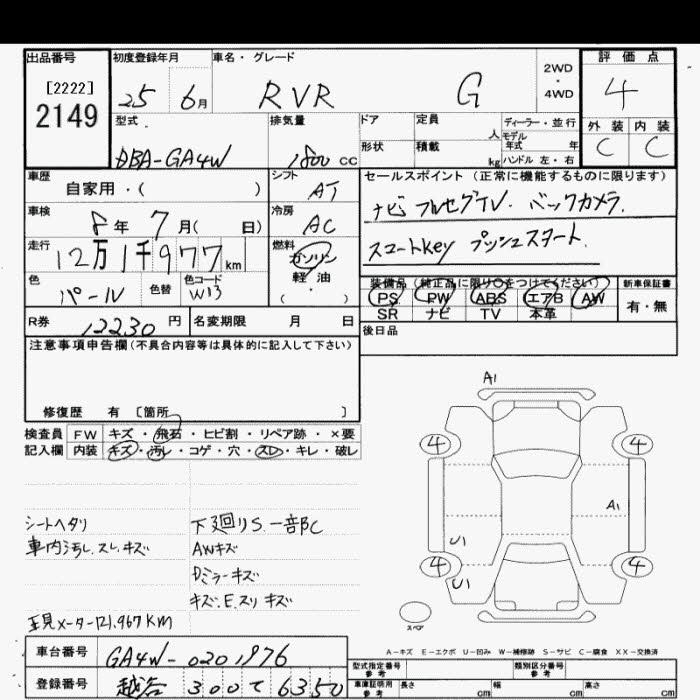 出品番号 [2222] 2149
初度登録年月 25 6月
車名・グレード RVR G
2WD・4WD
評価点 4
外装 C 内装 C
型式 DBA-GA4W
排気量 1800 cc
ドア 形状
定員 人 積載 kg
ディーラー・並行
モデル年式 年
ハンドル 左・右
車歴 自家用・( )
シフト AT
車検 8年 7月( 日)
冷房 AC
走行 12万1千977km
燃料 ガソリン 軽油 ( ・ )
色 パール 色替 色コード W13
R券 12230円 名変期限 月 日
セールスポイント (正常に機能するものに限ります)
ナビ フルセグTV. バックカメラ.
スマートkey プッシュスタート.
装備品 (純正品に限り〇をつけてください) 新車保証書
PS PW ABS エアB AW 有・無
SR ナビ TV 本革
後日品
注意事項申告欄(不具合内容等は具体的に記入して下さい)
修復歴 有 〔箇所 〕
検査員 FW キズ・飛石・ヒビ割・リペア跡・×要
記入欄 内装 キズ・汚レ・コゲ・穴・スレ・キレ・破レ
シートヘタリ 下廻りS. 一部C
車内汚レ.スレ.キズ AWキズ
Dミラーキズ
キズ.E.スリキズ
現メーター121.967KM
A1
4 4
A1
U1
4 4
U1
スペア
A-キズ E-エクボ U-凹み W-補修跡 S-サビ C-腐食 XX-交換済
車台番号 GA4W-0201976
登録番号 300 て 6350
型式指定番号 参考 類別区分番号 参考
車庫証明用 参考 長さ cm 幅 cm 高さ cm